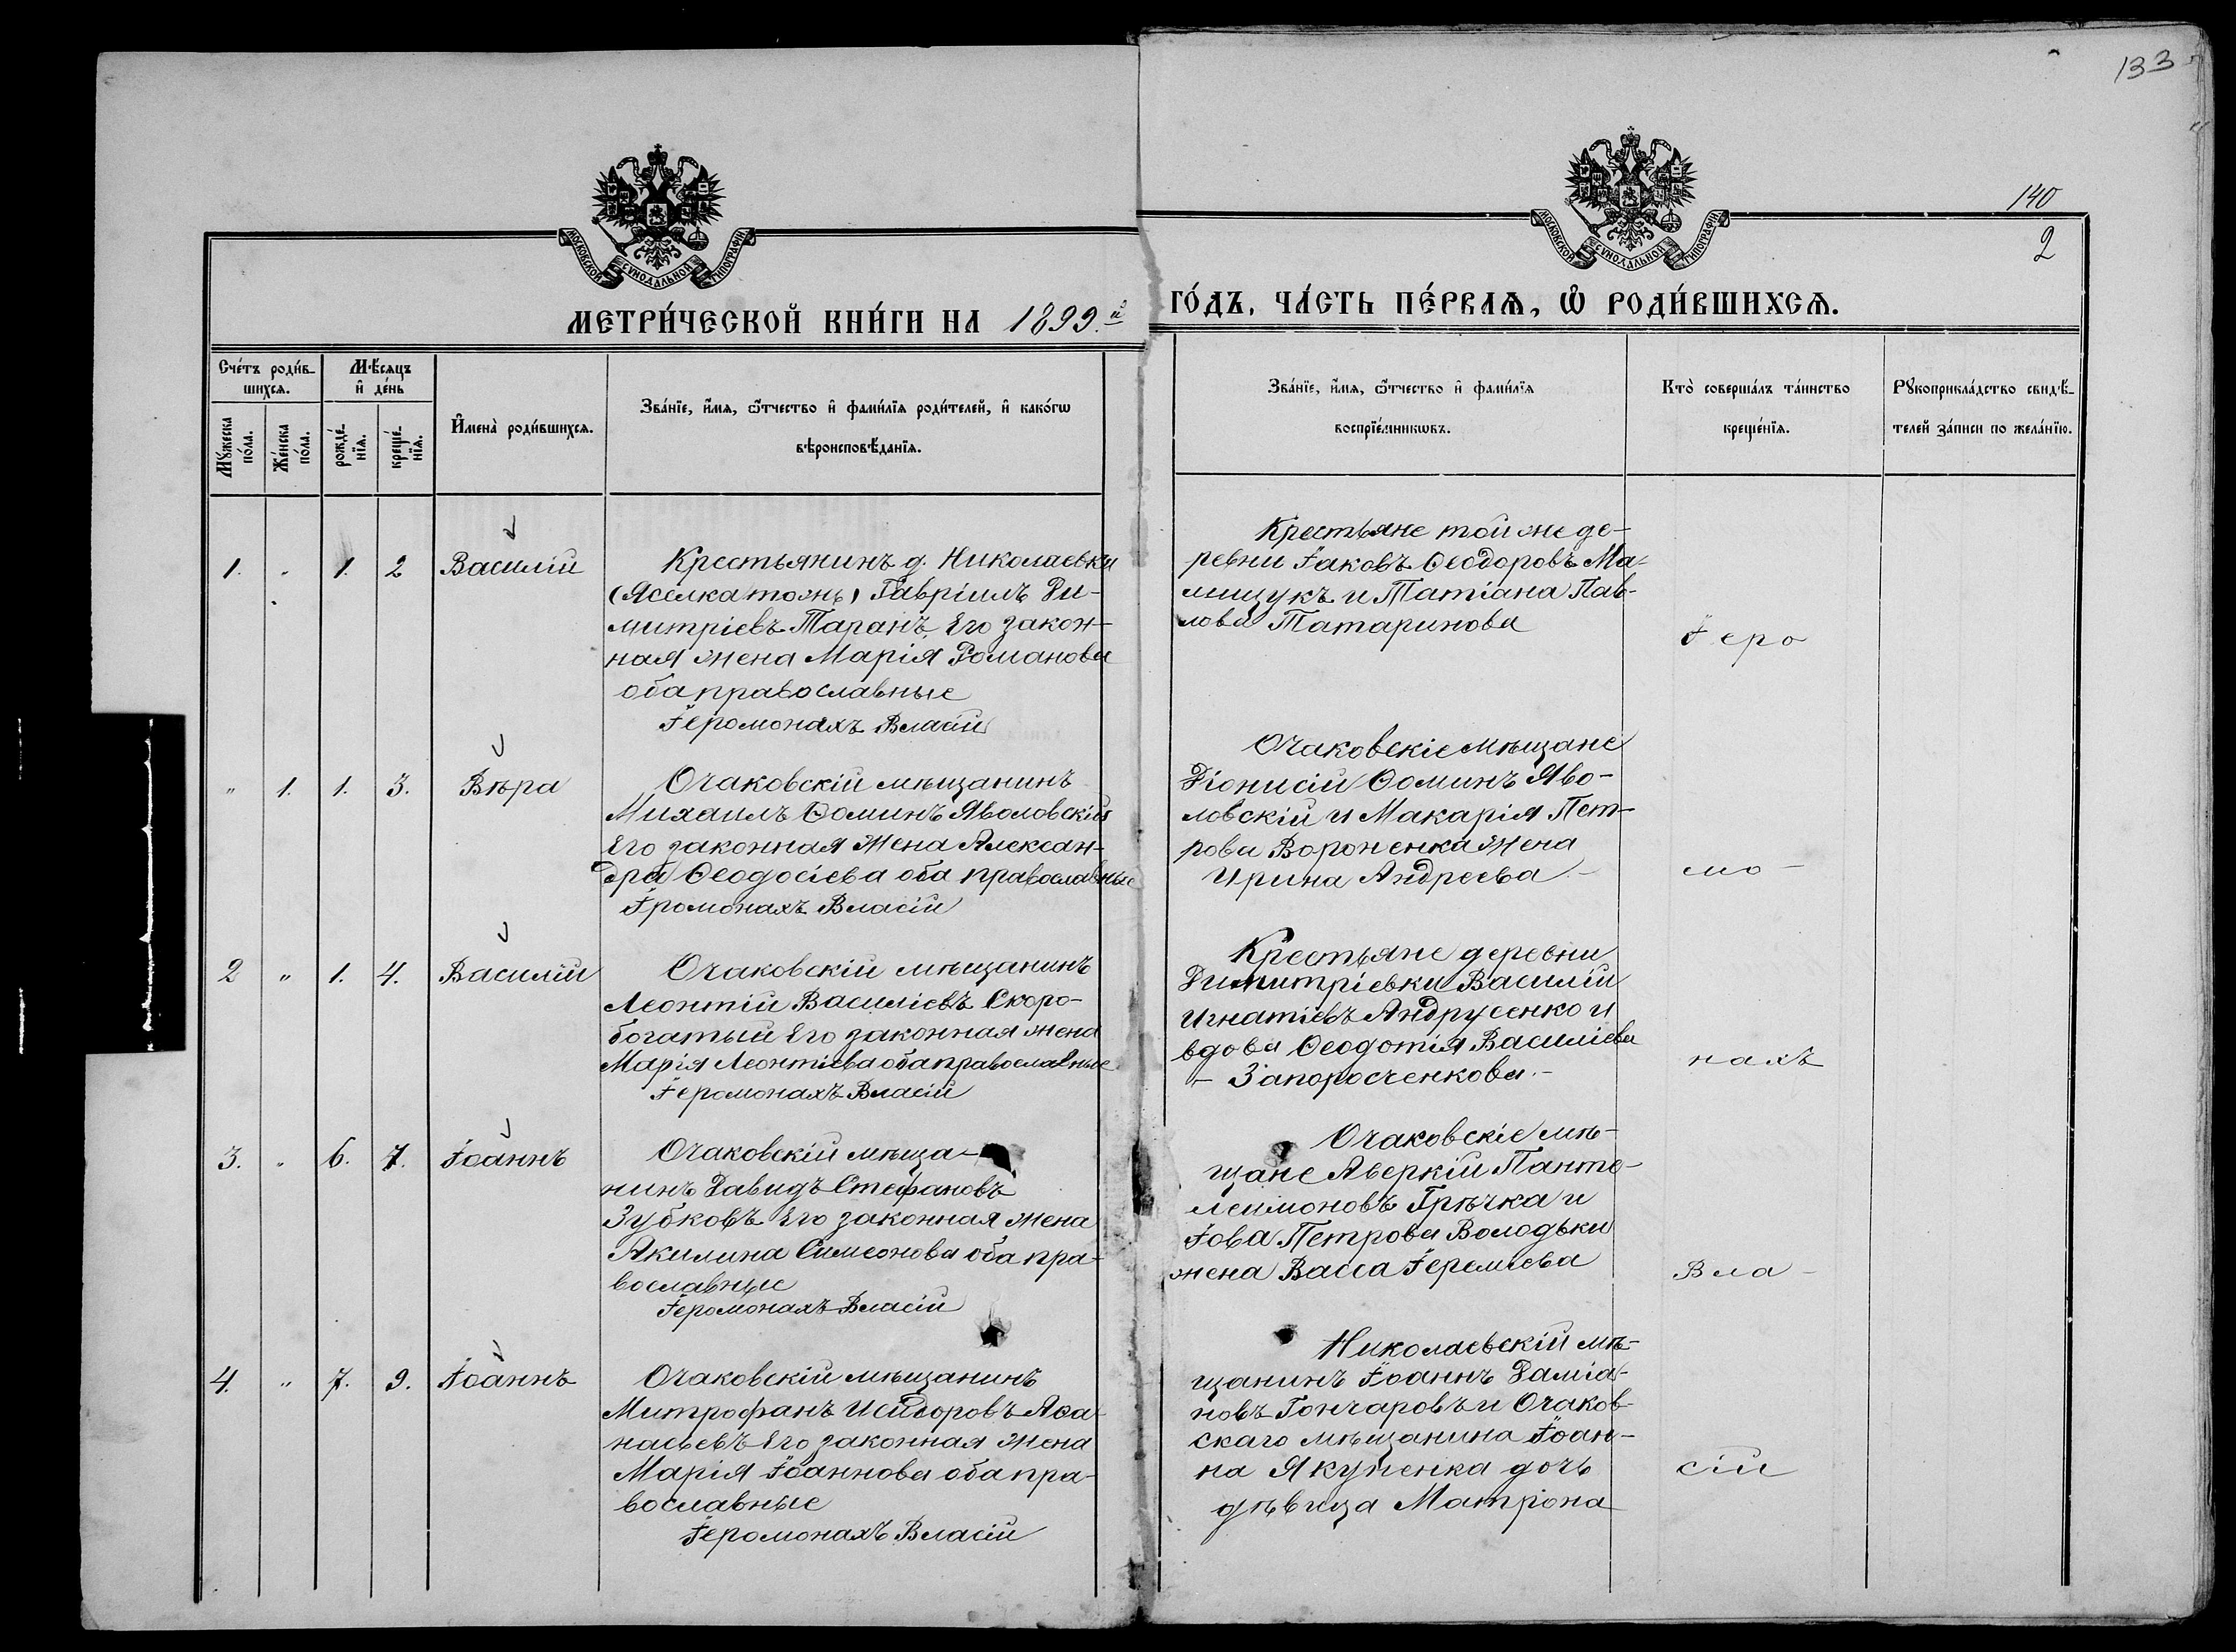 133
140
2
МОСКОВСКОЙ СѴНОДАЛЬНОЙ ТИПОГРАФІИ
МЕТРИ́ЧЕСКОЙ КНИ́ГИ НА 1899.й
МОСКОВСКОЙ СѴНОДАЛЬНОЙ ТИПОГРАФІИ
ГО́ДЪ, ЧА́СТЬ ПЕ́РВАѦ, Ѽ РОДИ́ВШИХСѦ.
Сче́тъ роди́в-
шихсѧ.
Мꙋжеска по́ла.
Же́нска по́ла.
Мѣ́сѧцъ
и҆ де́нь
рожде́-нїѧ.
креще́-нїѧ.
И҆мена̀ роди́вшихсѧ.
Зва́нїе, и҆́мѧ, ѻ҆́тчество и҆ фами́лїѧ роди́телей, и҆ како́гѡ
вѣроисповѣ́данїѧ.
Зва́нїе, и҆́мѧ, ѻ҆́тчество и҆ фами́лїѧ
воспрїе́мникѡвъ.
Кто̀ соверша́лъ та́инство
креще́нїѧ.
Рꙋкоприкла́дство свидѣ́-
телей за́писи по жела́нїю.
1. „ 1. 2 Василій
Крестьянинъ д. Николаевки
(Аселкатожъ) Гавріилъ Ди-
митріевъ Таранъ, Его закон-
ная жена Марія Романова
оба православные
Іеромонахъ Власій
Крестьяне той же де-
ревни Іаковъ Ѳеодоровъ Ма-
лищукъ и Татіана Пав-
лова Татаринова
Іеро
„ 1. 1. 3. Вѣра
Очаковскій мѣщанинъ
Михаилъ Ѳоминъ Яволовскій
Его законная жена Алексан-
дра Ѳеодосіева оба православные
Іромонахъ Власій
Очаковскіе мѣщане
Діонисій Ѳоминъ Яво-
ловскій и Макарія Пет-
рова Вороненка жена
Ирина Андреева -
мо -
2 „ 1. 4. Василій
Очаковскій мѣщанинъ
Леонтій Василіевъ Скоро-
богатый Его законная жена
Марія Леонтіева оба православные
Іеромонахъ Власій
Крестьяне деревни
Димитріевки Василій
Игнатіевъ Андрусенко и
вдова Ѳеодотія Василіева
- Запоросченкова. -
нахъ
3. „ 6. 7. Іоаннъ
Очаковскій мѣща-
нинъ Давидъ Стефановъ
Зубковъ Его законная жена
Акилина Симеонова оба пра-
вославные
Іеромонахъ Власій
Очаковскіе мѣ-
щане Аверкій Панте-
леимоновъ Грѣчка и
Іова Петрова Володьки
жена Васса Іереміева
Вла -
4. „ 7. 9. Іоаннъ
Очаковскій мѣщанинъ
Митрофанъ Исидоровъ Аѳа-
насьевъ Его законная жена
Марія Іоаннова оба пра-
вославные
Іеромонахъ Власій
Николаевскій мѣ-
щанинъ Іоаннъ Даміа-
новъ Гончаровъ и Очаков-
скаго мѣщанина Іоан-
на Якупенка дочь
дѣвица Матрона
сій